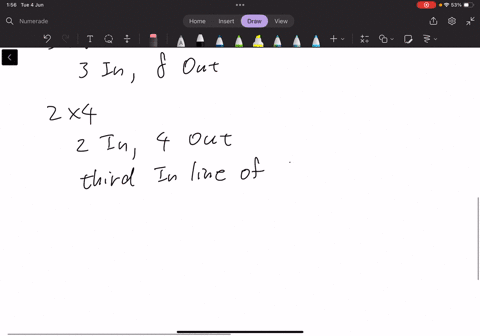 1:56 Tue 4 Jun
53%
Numerade
Home Insert Draw View
3 In, 8 Out
2×4
2 In, 4 Out
third In line of